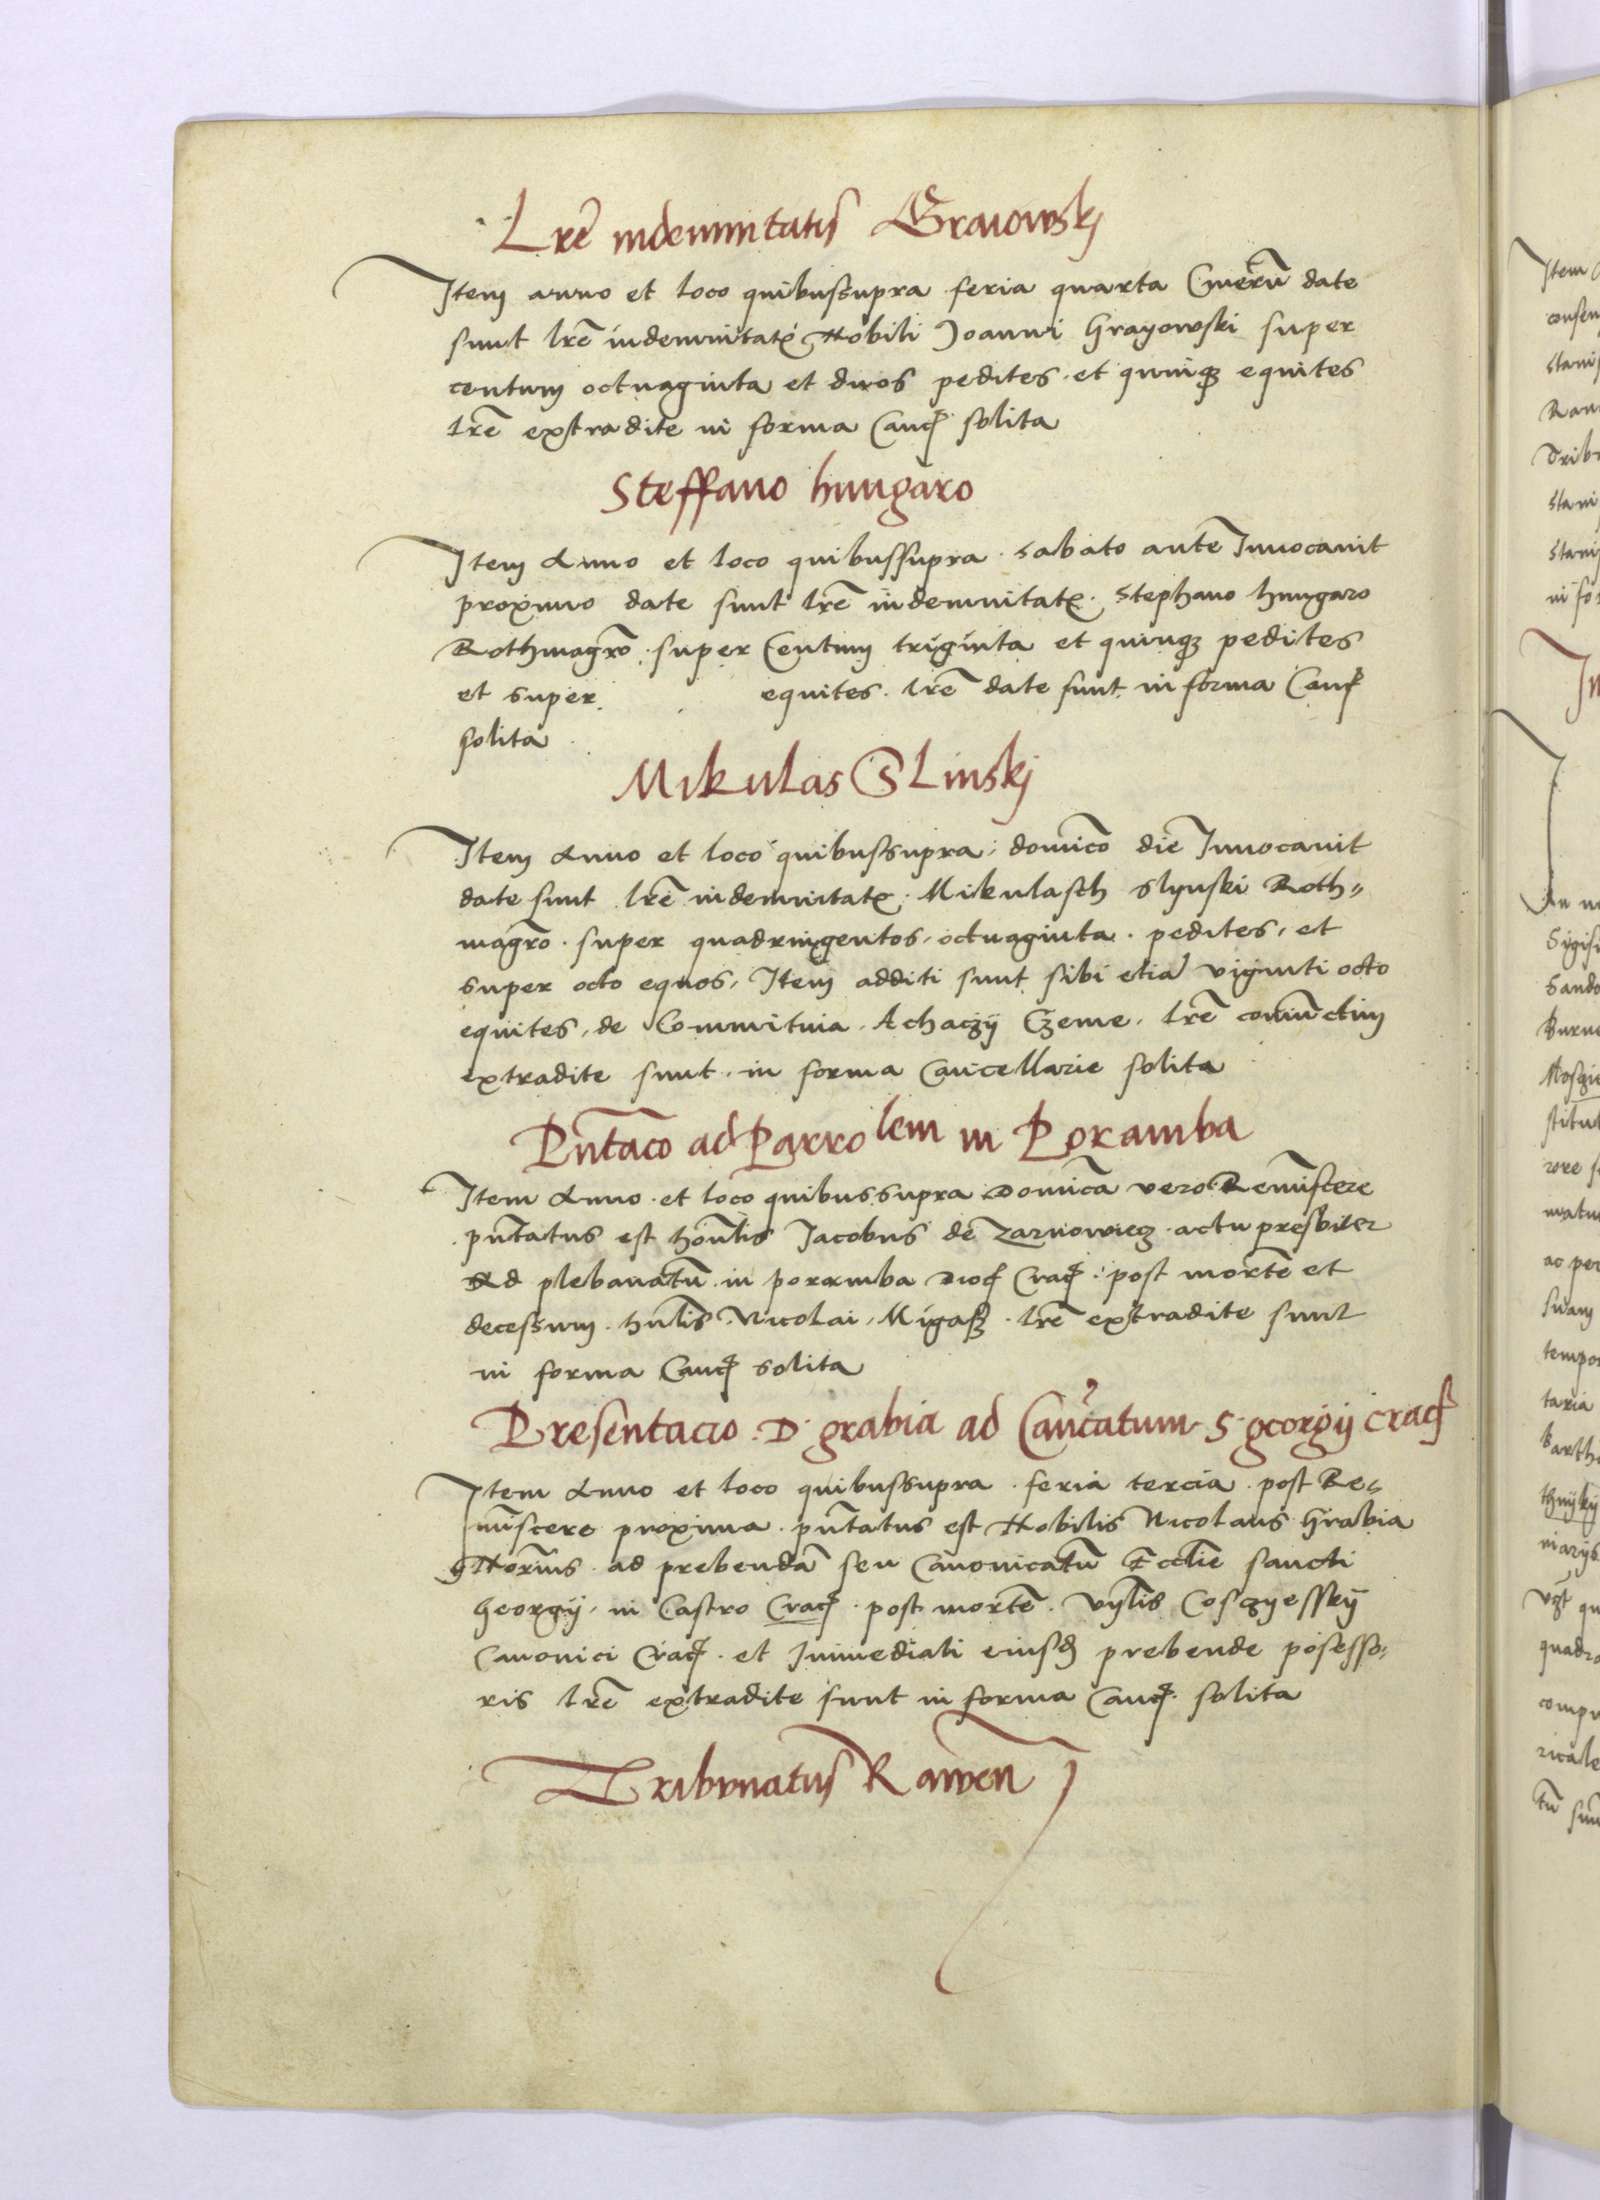 Lrē indemnitatis Graiowskj
Item anno et loco quibussupra feria quarta Cinerū date
sunt lrē indemnitatꝭ Nobili Joanni Grayowski super
centum octuaginta et duos pedites et quinqꝫ equites
lrē extradite in forma Canc̄ solita
Steffano hungaro
Item Anno et loco quibussupra sabato ante Inuocauit
proximo date sunt lrē indemnitatꝭ Stephano hungaro
Rothmagrō super Centum triginta et quinqꝫ pedites
et super equites lrē date sunt in forma Canc̄
solita
Mikulas Slinskj
Item Anno et loco quibussupra, domīco die Inuocauit
date sunt lrē indemnitatꝭ Mikulasch Slynski Roth-
magrō super quadringentos, octuaginta pedites, et
super octo equos, Item additi sunt sibi etiā viginti octo
equites, de Commitiua Achaczÿ Czeme, lrē coniūctim
extradite sunt in forma Cancellarie solita
Pn̄tacō ad Parrolem in Poramba
Item Anno et loco quibussupra Domīca vero Remīscere
pn̄tatus est hon̄lis Jacobus de Zarnowiecz actu presbiter
Ad plebanatū in poramba Dioc̄ Crac̄ post mortē et
decessum hn̄lis Nicolai Migasz lrē extradite sunt
in forma Canc̄ solita
Presentacio D grabia ad Can̄catum S georgÿ Crac̄
Item Anno et loco quibussupra feria tercia post Re-
mīscere proxima pn̄tatus est Nobilis Nicolaus Grabia
Notarius ad prebendā seu Canonicatū Eccl̄ie sancti
Georgÿ, in Castro Crac̄ post mortē Cosczyesskÿ
Canonici Crac̄ et Immediati eiusd̄ prebende posesso-
ris lrē extradite sunt in forma Canc̄ solita
Tribunatus Rawen̄